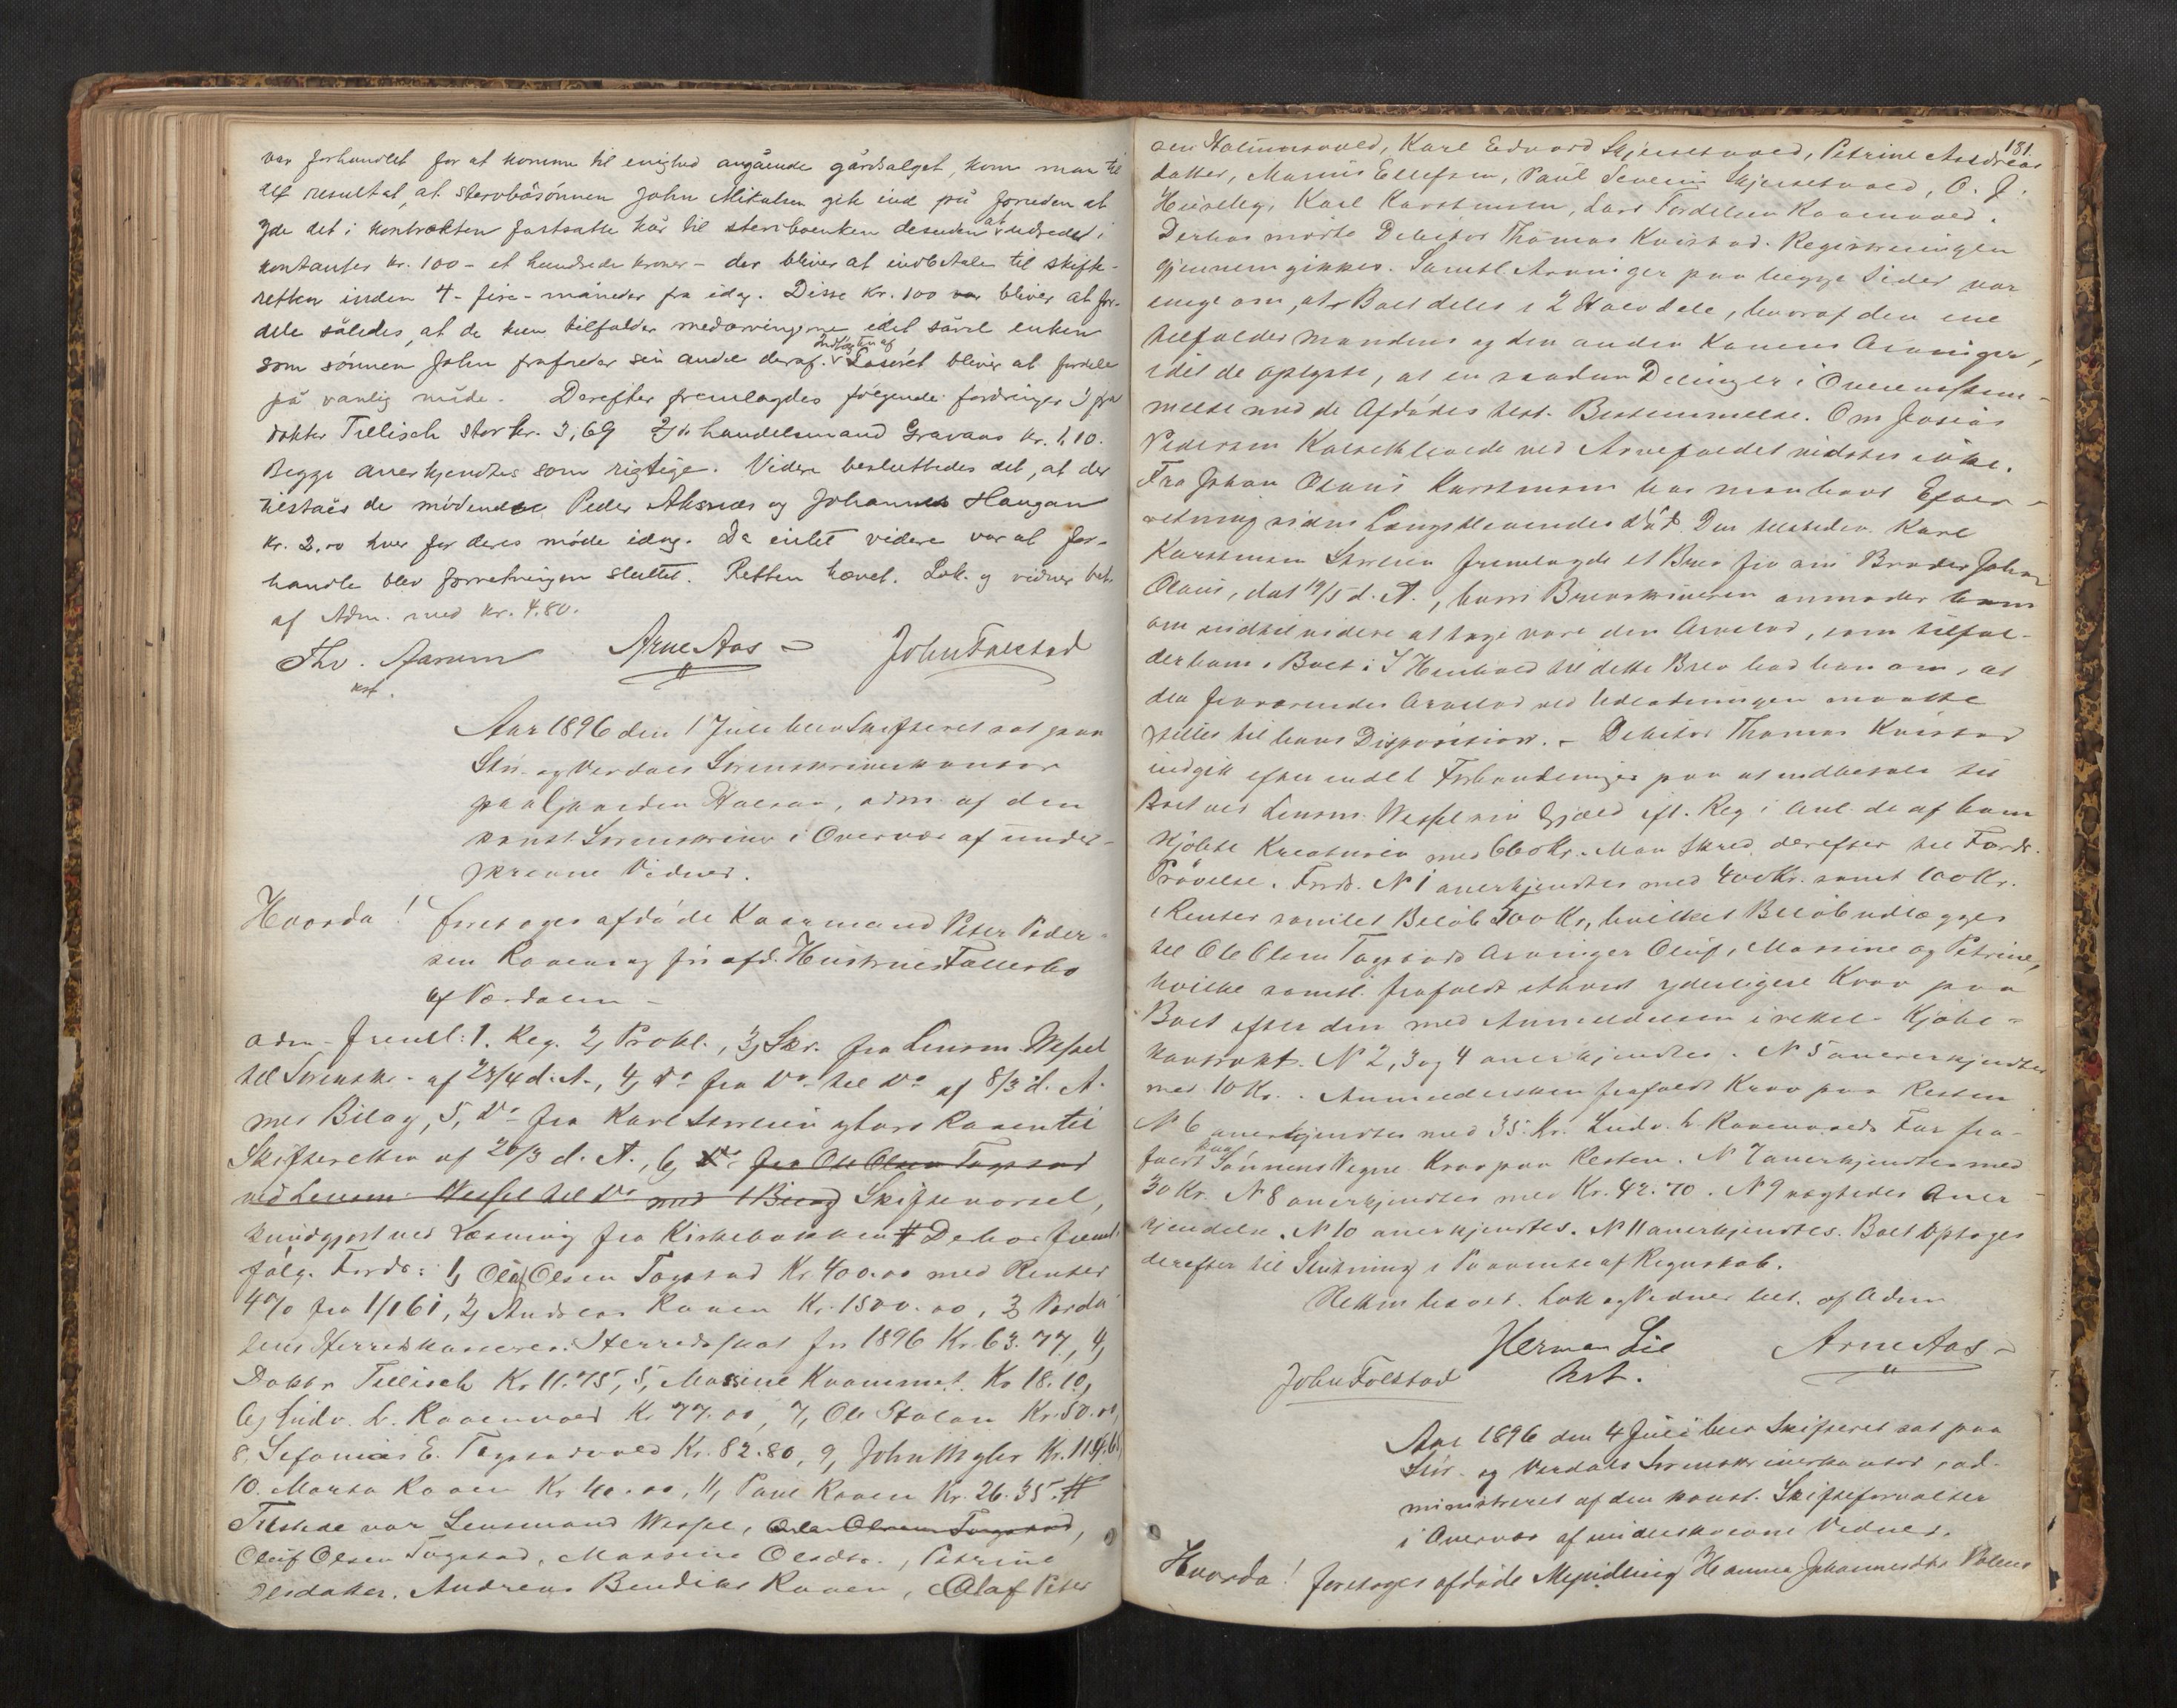 var forhandlet for at komme til enighed angående gårdsalget, kom man til
det resultat, at stervbosønnen John Mikalsen gik ind på foruden at
yde det i kontrakten fastsatte kår til stervboenken desuden at udrede i
kontanter kr. 100 - et hundrede kroner - der bliver at indbetale til skifte-
retten inden 4 - fire - måneder fra idag. Disse kr. 100 var bliver at for-
dele således, at de kun tilfalder medarvingerne, idet såvel enken
som sønnen John frafalder sin andel deraf. Indtægten af Løsøret bliver at fordele
på vanlig måde. Derefter fremlagdes følgende fordringer 1/ fra
doktor Tellisch stor kr. 3,69 2/ fra handelsmand Gravaas kr. 1,10.
Begge anerkjendtes som rigtige. Videre besluttedes det, at der
tilstaaes de mødende Peder Aksnes og Johannes Haugan
kr. 2.00 hver for deres møde idag. Da intet videre var at for-
handle blev forretningen sluttet. Retten hævet. Lok. og vidner bet.
af Adm. med kr. 4.80.
Thv. Aarum Arne Aas John Folstad
kst.
Aar 1896 den 1 Juli blev Skifteret sat paa
Stør- og Værdals Sorenskriverkontor
paa Gaarden Halsan, adm. af den
const. Sorenskriver i Overvær af under-
skrevne Vidner.
Hvorda! foretoges afdøde Kaarmand Peter Peder-
sen Raaen og før afd. Hustrues Fællesbo
af Værdalen -
Adm. freml: 1. Reg. 2, Prokl., 3, Skr. fra Lensm. Wessel
til Sorenskr. af 23/4 d. A., 4, Do fra Do til Do af 8/3 d. A.
med Bilag, 5, Do fra Karl Storsein og Lars Raaen til
Skifteretten af 20/3 d. A., 6, Do fra Ole Olsen Tagstad
ved Lensm. Wessel til Do med 1 Bilag Skiftevarsel,
kundgjort ved Læsning fra Kirkebakken # Derhos freml.
følg. Fordr: 1, Oluf Olsen Tagstad Kr. 400.00 med Renter
4% fra 1/1 61, 2, Andreas Raaen Kr. 1500.00, 3, Værda-
lens Herredskasserer. Herredsskat for 1896 Kr. 63.77, 4,
Doktor Tellisch Kr 11.75, 5, Massine Kvammet Kr 18.10,
6, Ludv. L. Raaenvald Kr 77.00, 7, Ole Stolan Kr. 50.00,
8, Sefanias E. Tagstadvald Kr. 82.80, 9, John Mygler Kr. 114.61
10. Marta Raaen Kr 40.00, 11, Paul Raaen Kr. 26.35. #
Tilstede var Lensmand Wessel, Ole Olsen Tagstad,
Oluf Olsen Tagstad, Massine Olsdtr., Petrine
Olsdatter, Andreas Bendiks Raaen, Olaf Peter
181.
sen Holmenvald, Karl Edvard Skjersetvald, Petrine Andreas
datter, Marius Ellefsen, Paul Severin Skjersetvald, O. J.
Karl Karstensen, Lars Tordelsen Raaenvald.
Derhos mødte Debitor Thomas Kvistad. Registreringen
gjennemgikkes. Samtl Arvinger paa begge Sider var
enige om, at Boet deles i 2 Halvdele, hvoraf den ene
tilfalder Mandens og den anden Konens Arvinger,
idet de oplyste, at en saadan Deling er i Overensstem-
melse med de Afdødes test. Bestemmelse. Om Josias
Pedersen Kalsetlevede ved Arvefaldet vidstes ikke.
Fra Johan Olaus Karstensen har man havt Efter-
retning siden Længstlevendes Død. Den tilstedev. Karl
Karstensen Storsein fremlagde et Brev fra sin Broder Johan
Olaus, dat 19/5 d. A., hvori Brevskriveren anmoder ham
om indtil videre at tage vare den Arvelod, som tilfal-
der ham i Boet. I Henhold til dette Brev bad han om, at
den fraværendes Arvelod ved Udlodningen maatte
stilles til hans Disposition. - Debitor Thomas Kvistad
indgik efter endel Forhandlinger paa at indbetale til
Boet ved Lensm. Wessel sin Gjæld eft. Reg. i Anl. de af ham
kjøbte Kreaturer med 660 Kr. Man skred derefter til Fordr.
Prøvelse. Fordr. N 1 anerkjendtes med 400 Kr. samt 100 Kr.
i Renter samlet Beløb 500 Kr, hvilket Beløb udlægges
til Ole Olsen Tagstads Arvinger Oluf, Massine og Petrine,
hvilke samtl. frafaldt ethvert yderligere Krav paa
Boet efter den med Anmeldelsen i rette Kjøbe-
kontrakt. N 2, 3 og 4 anerkjendtes. N 5 anererkjendtes
med 10 Kr. Anmeldersken frafaldt Krav paa Resten
N 6 anerkjendtes med 35 Kr. Ludv. L. Raaenvalds Far fra-
faldt paa Sønnens Vegne Krav paa Resten. N 7 anerkjendtes med
30 Kr. N 8 anerkjendtes med Kr. 42.70. N 9 nægtedes Aner-
kjendelse. N 10 anerkjendtes. N 11 anerkjendtes. Boet optoges
derefter til Slutning i Paavente af Regnskab.
Retten hævet. Lok og Vidner bet. af Adm
Herman Lie Arne Aas
John Folstad kst.
Aar 1896 den 4 Juli blev Skifteret sat paa
Stør- og Værdals Sorenskriverkontor, ad-
ministreret af den const. Skifteforvalter
i Overvær af underskrevne Vidner.
Hvorda! foretoges afdøde Myndling Hanna Johannesdtr Valens